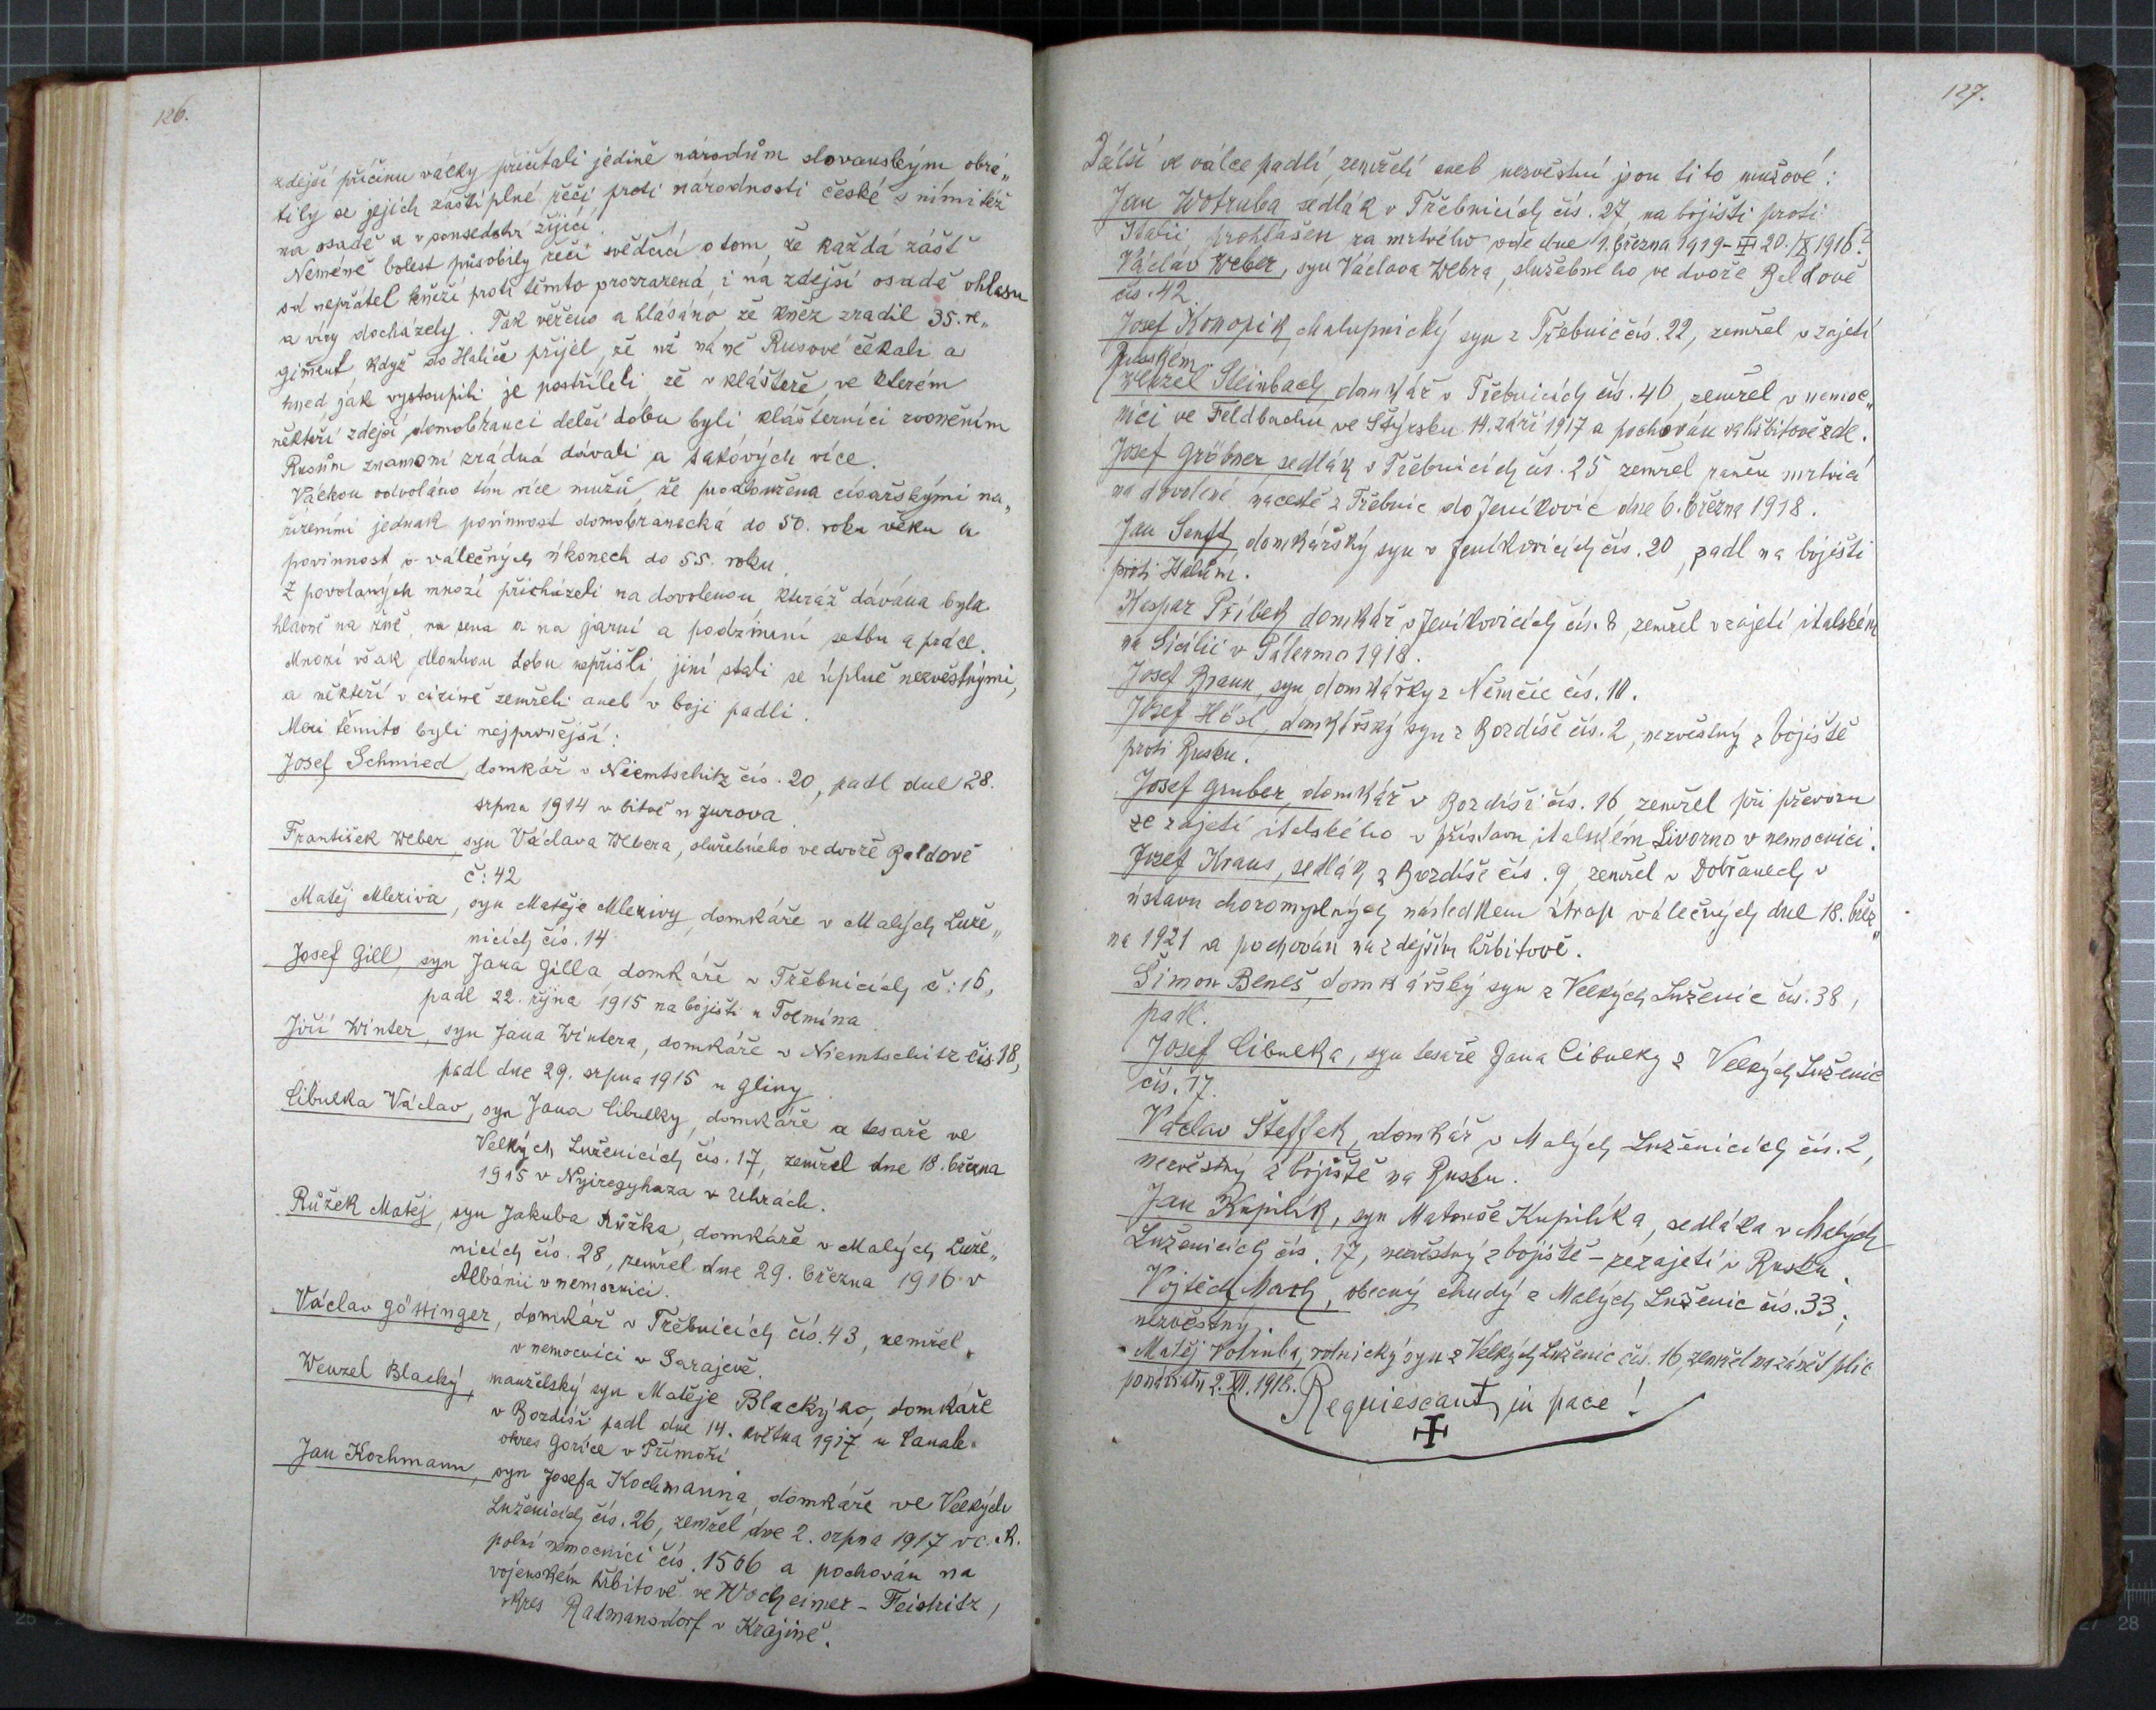 126.
zdejší příčinu války přičítali jedině národům slovanským obrá„
tily se jejich záštiplné řeči proti národnosti české s nimi též
na osadě a v sousedství žijící.
Neméně bolest působily řeči svědčící o tom, že každá zášť
od nepřátel kněží proti těmto prozrazená i na zdejší osadě ohlasu
a víry docházely. Tak věřeno a hlásáno že kněz zradil 35. re„
giment když do Haliče přijel, že už na ně Rusové čekali a
hned jak vystoupili je postříleli, že v klášteře, ve kterém
někteří zdejší domobranci delší dobu byli klášterníci zvoněním
Rusům znamení zrádná dávali a takových více.
Válkou odvoláno tím více mužů, že prodloužena císařskými na„
řízeními jednak povinnost domobranecká do 50. roku věku a
povinnost o válečných úkonech do 55. roku.
Z povolaných mnozí přicházeli na dovolenou, kteráž dávána byla
hlavně na žně, na sena a na jarní a podzimní setbu a práce.
Mnozí však dlouhou dobu nepřišli, jiní stali se úplně nezvěstnými,
a někteří v cizině zemřeli aneb v boji padli.
Mezi těmito byli nejprvnější:
Josef Schmied, domkář v Niemtschitz čís. 20, padl dne 28.
srpna 1914 v bitvě u Jurova.
František Weber, syn Václava Webera, služebného ve dvoře Paldově
č: 42
Matěj Mleziva, syn Matěje Mlezivy, domkáře v Malých Luže„
nicích čís. 14
Josef Gill, syn Jana Gilla, domkáře v Třebnicích č: 16,
padl 22. října 1915 na bojišti u Tolmína.
Jiří Winter, syn Jana Wintera, domkáře v Niemtschitz čís. 18,
padl dne 29. srpna 1915 u Gliny.
Cibulka Václav, syn Jana Cibulky, domkáře a tesaře ve
Velkých Luženicích čís. 17, zemřel dne 18. března
1915 v Nyiregyhaza v Uhrách.
Růžek Matěj, syn Jakuba Růžka, domkáře v Malých Luže„
nicích čís. 28, zemřel dne 29. března 1916 v
Albánii v nemocnici.
Václav Göttinger, domkář v Třebnicích čís. 43, zemřel
v nemocnici v Sarajevě.
Wenzel Blacký, manželský syn Matěje Blackýho, domkáře
v Bozdíši padl dne 14. května 1917 u Canale
okres Gorice v Přímoří
Jan Kochmann, syn Josefa Kochmanna, domkáře ve Velkých
Luženicích čís. 26, zemřel dne 2. srpna 1917 v c. k.
polní nemocnici čís. 1506 a pochován na
vojenském hřbitově ve Wocheimer-Feistritz,
okres Radmansdorf v Krajině.
127.
Další ve válce padlí, zemřelí aneb nezvěstní jsou tito mužové:
Jan Wotruba sedlák v Třebnicích čís. 27, na bojišti proti
Italii, prohlášen za mrtvého ode dne 1. března 1919 - 20./X 1916?
Václav Weber, syn Václava Webra, služebného ve dvoře Paldově
čís. 42.
Josef Konopik, chalupnický syn z Třebnic čís. 22, zemřel v zajetí
Ruském.
Wenzel Steinbach domkář v Třebnicích čís. 40, zemřel v nemoc„
nici ve Feldbachu ve Štýrsku 14. září 1917 a pochován na hřbitově zde.
Josef Gröbner sedlák v Třebnicích čís. 25 zemřel raněn mrtvicí
na dovolené na cestě z Třebnic do Jeníkovic dne 6. března 1918.
Jan Senft domkářský syn v Jeníkovicích čís. 20, padl na bojišti
proti Italům.
Kašpar Příbek domkář v Jeníkovicích čís. 8, zemřel v zajetí italském
na Sicilii v Palermo 1918.
Josef Braun, syn domkářky z Němčic čís. 10.
Josef Hösl, domkářský syn z Bozdíše čís. 2, nezvěstný z bojiště
proti Rusku.
Josef Gruber, domkář v Bozdíši čís. 16 zemřel při převozu
ze zajetí italského v přístavu italském Livorno v nemocnici.
Josef Kraus, sedlák z Bozdíše čís. 9, zemřel v Dobřanech v
ústavu choromyslných následkem útrap válečných dne 18. břez„
na 1921 a pochován na zdejším hřbitově.
Šimon Beneš, domkářský syn z Velkých Luženic čís. 38,
padl.
Josef Cibulka, syn tesaře Jana Cibulky z Velkých Luženic
čís. 17.
Václav Šteffek, domkář v Malých Luženicích čís. 2,
nezvěstný z bojiště na Rusku.
Jan Kupilík, syn Matouše Kupilíka, sedláka v Malých
Luženicích čís. 17, nezvěstný z bojiště - ze zajetí v Rusku.
Vojtěch Mach, obecný chudý z Malých Luženic čís. 33,
nezvěstný.
Matěj Votruba, rolnický syn z Velkých Luženic čís. 16, zemřel na zánět plic
2. VII. 1918.
Requiescant in pace!